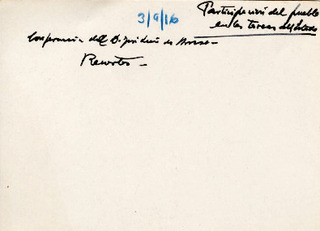 3/9/16
Participación del pueblo
en las tareas del Estado
Conferencia del Diputado de
Recortes -